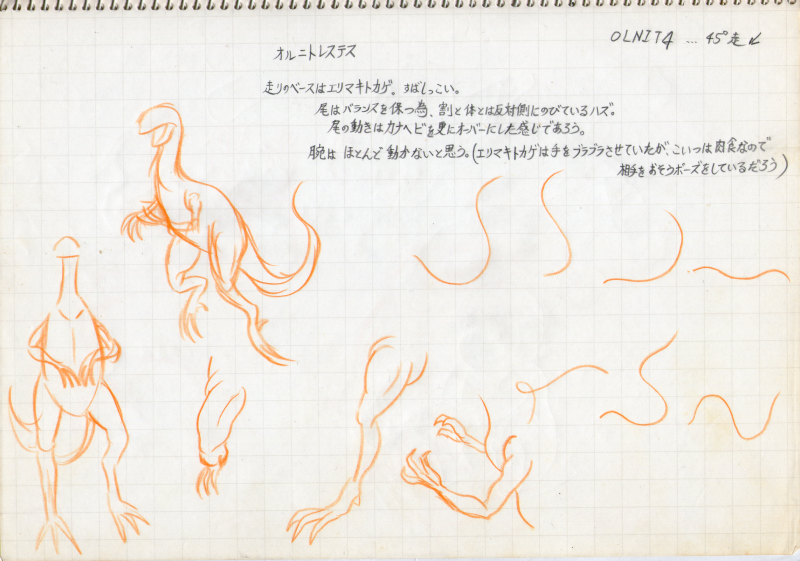 OLNIT4 … 45°走↙
オルニトレステス
走りのベースはエリマキトカゲ。すばしっこい。
尾はバランスを保つ為、割と体とは反対側にのびているハズ。
尾の動きはカナヘビを更にオーバーにした感じであろう。
腕は ほとんど動かないと思う。(エリマキトカゲは手をブラブラさせていたが、こいつは肉食なので
相手をおそうポーズをしているだろう)